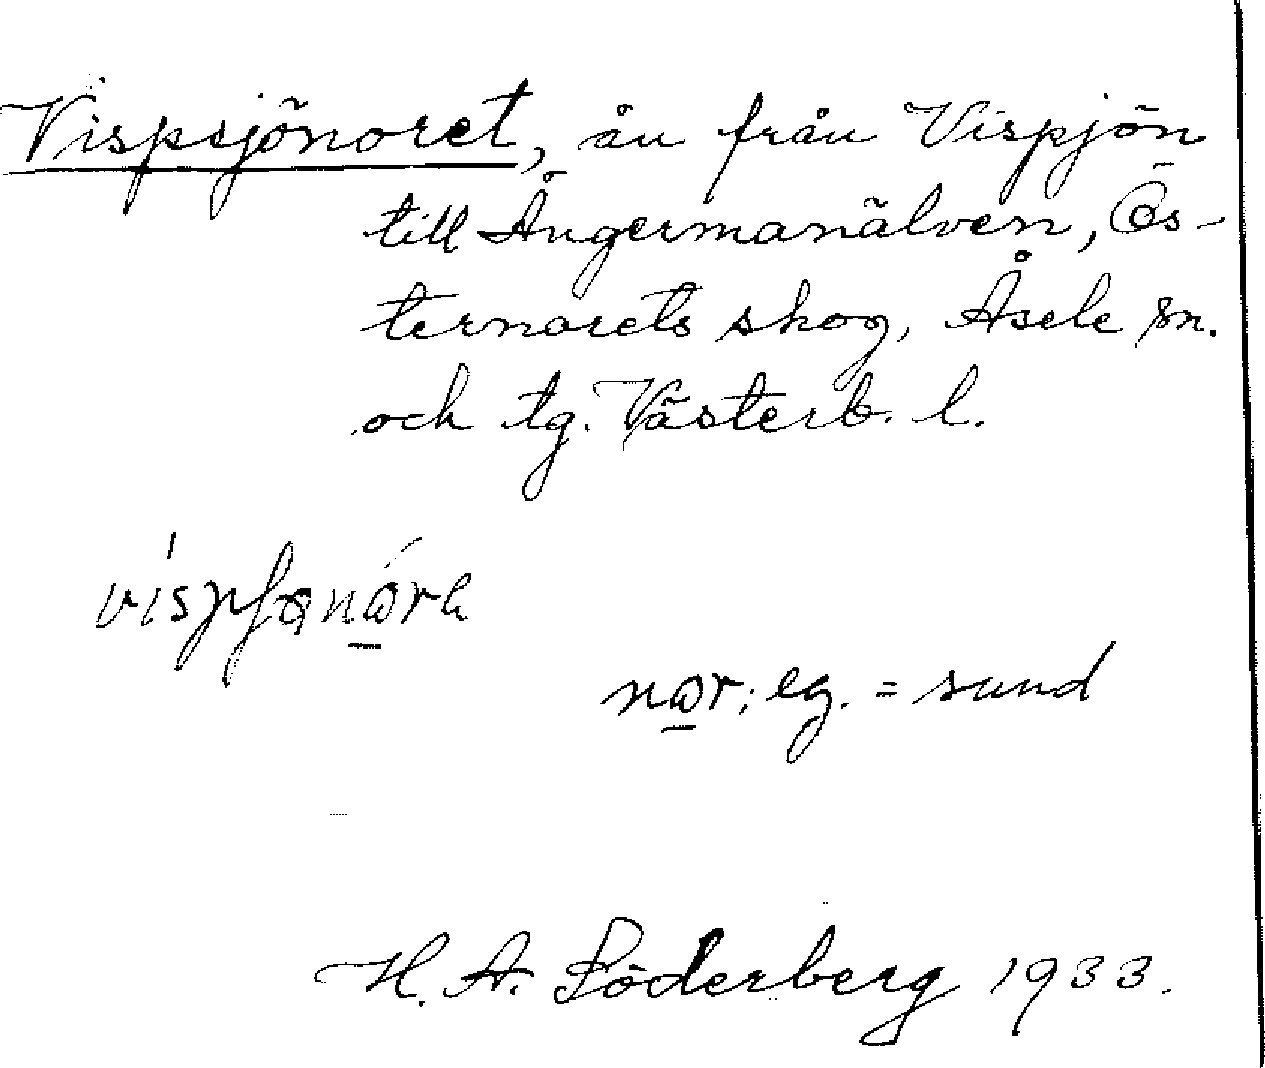 Vispsjönoret, ån från Vispjön
till Ångermanälven, Ös-
ternorets skog, Åsele sn.
och tg. Västerb. l.
nor; eg. = sund
H. A. Söderberg 1933.